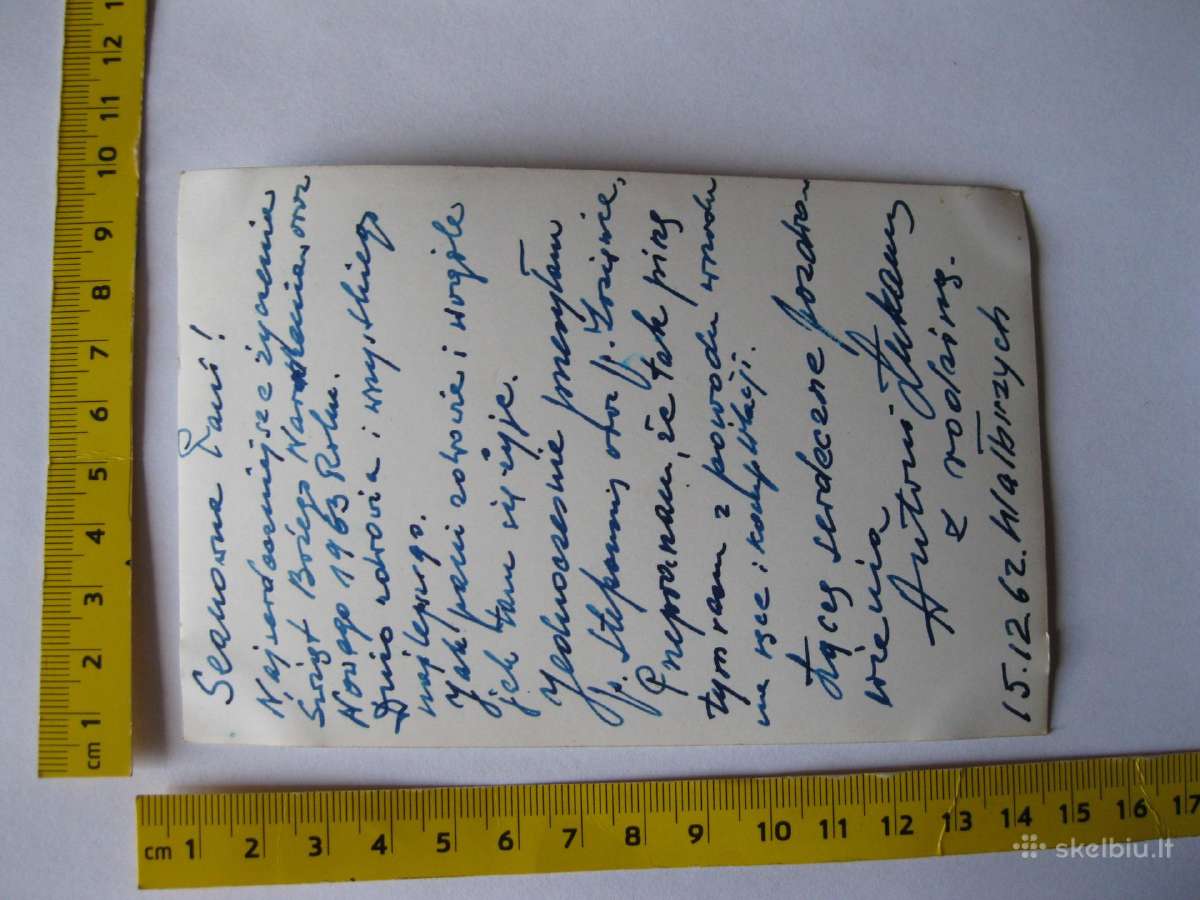 Szanowna Pani!
Najserdeczniejsze życzenia
Świąt Bożego Narodzenia oraz
Nowego 1963 Roku.
Dużo zdrowia i wszystkiego
najlepszego.
Jak pani zdrowie i wogóle
jak tam się żyje.
Jednocześnie przesyłam
p.
Przepraszam, że tak piszę
tym razem z powodu wrzodu
na ręce i komplikacji.
Łączę serdeczne pozdro
wienia
Antoni
z rodziną.
15.12.62. Wałbrzych
cm 1 2 3 4 5 6 7 8 9 10 11 12
cm 1 2 3 4 5 6 7 8 9 10 11 12 13 14 15 16 17
skelbiu.lt